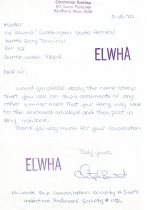 5-14-90
Master
mv Elwha (Washington State Ferries)
Seattle Ferry Terminal
Pier 52
Seattle, Wash. 98104
ELWHA
Dear Sir,
Would you please apply the name stamp
that you use on ships documents or any
other similar mark that your ferry may have
to the enclosed envelope and then post in
any mailbox.
Thank you very much for your cooperation
ELWHA
Truly yours,
Universal Ship Cancellation Society
Maritime Postmark Society